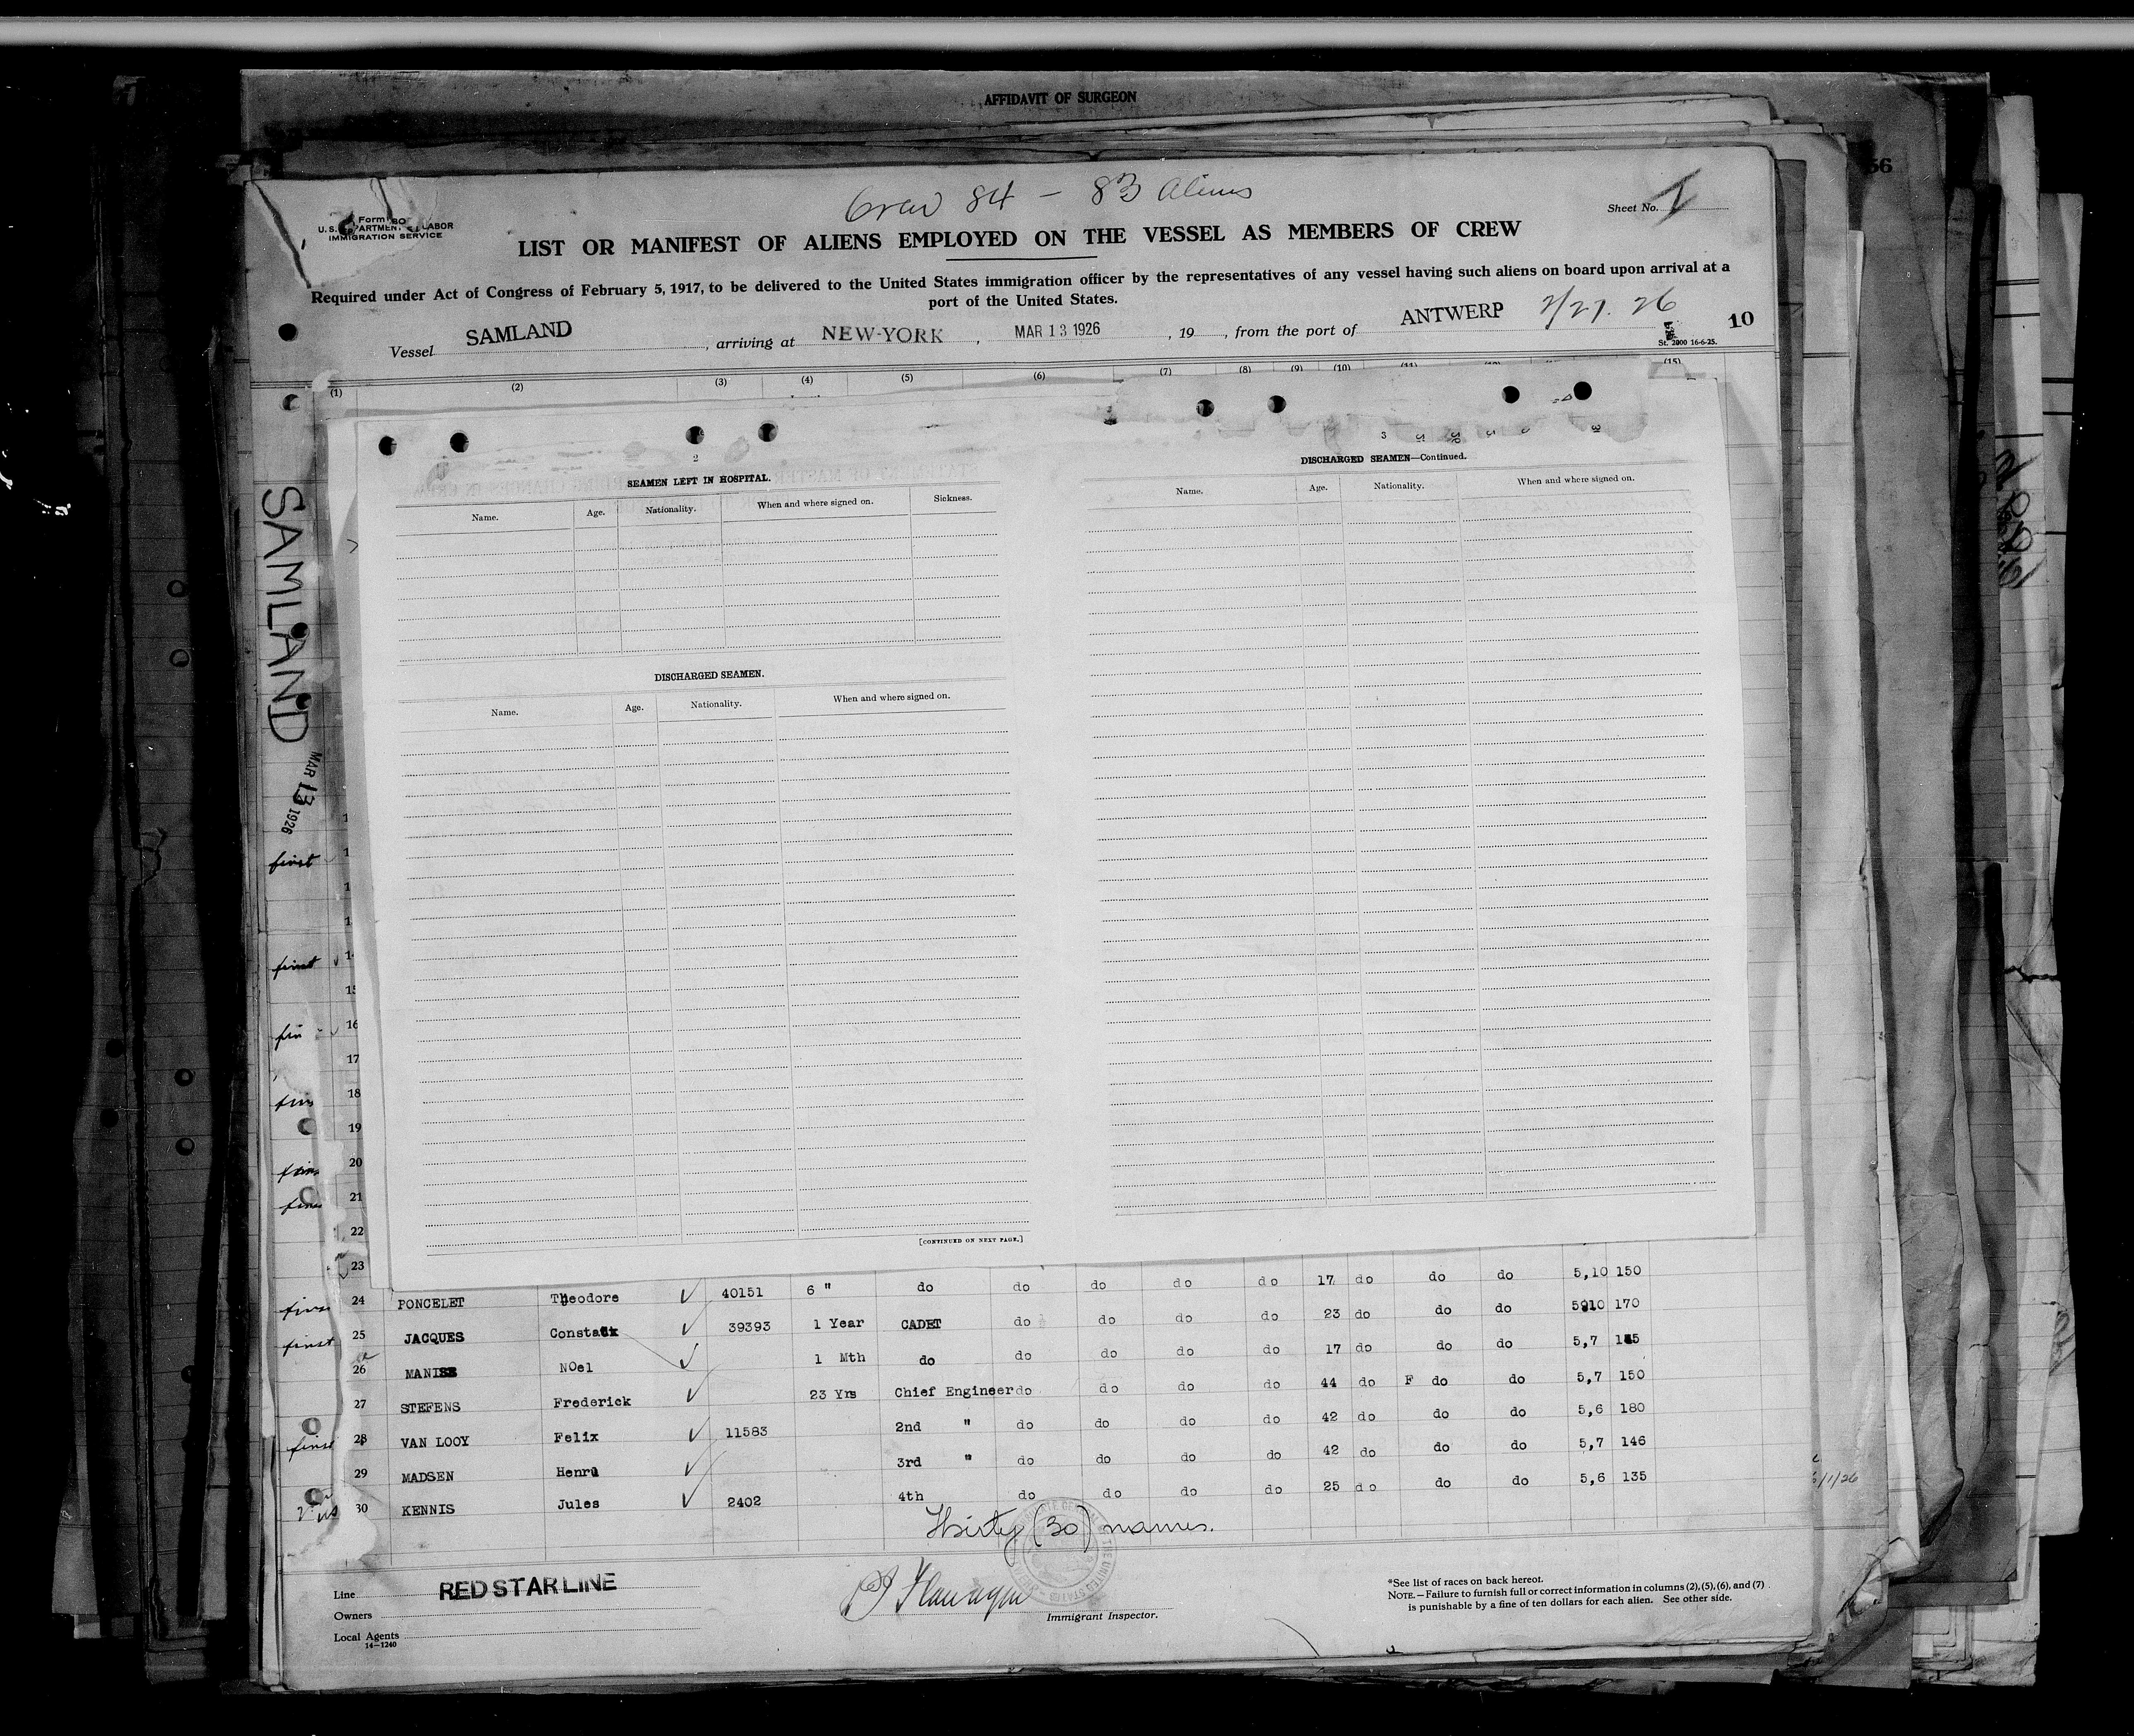 AFFIDAVIT OF SURGEON
56
Crew 84 - 83 aliens
Form 680
U.S. DEPARTMENT OF LABOR
IMMIGRATION SERVICE
Sheet No. 1
LIST OR MANIFEST OF ALIENS EMPLOYED ON THE VESSEL AS MEMBERS OF CREW
Required under Act of Congress of February 5, 1917, to be delivered to the United States immigration officer by the representatives of any vessel having such aliens on board upon arrival at a
port of the United States.
Vessel SAMLAND, arriving at NEW-YORK, MAR 13 1926, 19, from the port of ANTWERP 2/27. 26
10
St. 2000 16-6-25.
(1) (2) (3) (4) (5) (6) (7) (8) (9) (10) (11) (15)
SAMLAND
MAR 13 1926
2
SEAMEN LEFT IN HOSPITAL.
Name. Age. Nationality. When and where signed on. Sickness.
DISCHARGED SEAMEN.
Name. Age. Nationality. When and where signed on.
[CONTINUED ON NEXT PAGE.]
3
DISCHARGED SEAMEN—Continued.
Name. Age. Nationality. When and where signed on.
first
first
15
16
17
18
19
20
21
22
23
24 PONCELET Theodore 40151 6 " do do do do do 17 do do do 5,10 150
first 25 JACQUES 39393 1 Year CADET do do do do 23 do do do 5,10 170
26 NOel 1 Mth do do do do do 17 do do do 5,7
27 STEFENS Frederick 23 Yrs Chief Engineer do do do do 44 do F do do 5,7 150
first 28 VAN LOOY Felix 11583 2nd " do do do do 42 do do do 5,6 180
29 MADSEN 3rd " do do do do 42 do do do 5,7 146
30 KENNIS Jules 2402 4th do do do do 25 do do do 5,6 135
Thirty (30) names.
Line RED STAR LINE
Owners
Local Agents
14-1240
Immigrant Inspector.
*See list of races on back hereof.
NOTE.—Failure to furnish full or correct information in columns (2), (5), (6), and (7)
is punishable by a fine of ten dollars for each alien. See other side.